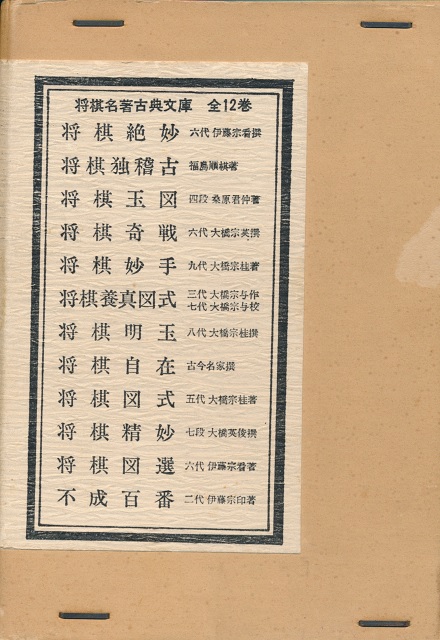 将棋名著古典文庫 全12巻
将棋絶妙 六代 伊藤宗看撰
将棋独稽古 福島順棋著
将棋玉図 四段 桑原君仲著
将棋奇戦 六代 大橋宗英撰
将棋妙手 九代 大橋宗桂著
将棋養真図式 三代 大橋宗与作
七代 大橋宗与校
将棋明玉 八代 大橋宗桂撰
将棋自在 古今名家撰
将棋図式 五代 大橋宗桂著
将棋精妙 七段 大橋英俊撰
将棋図選 六代 伊藤宗看著
不成百番 二代 伊藤宗印著